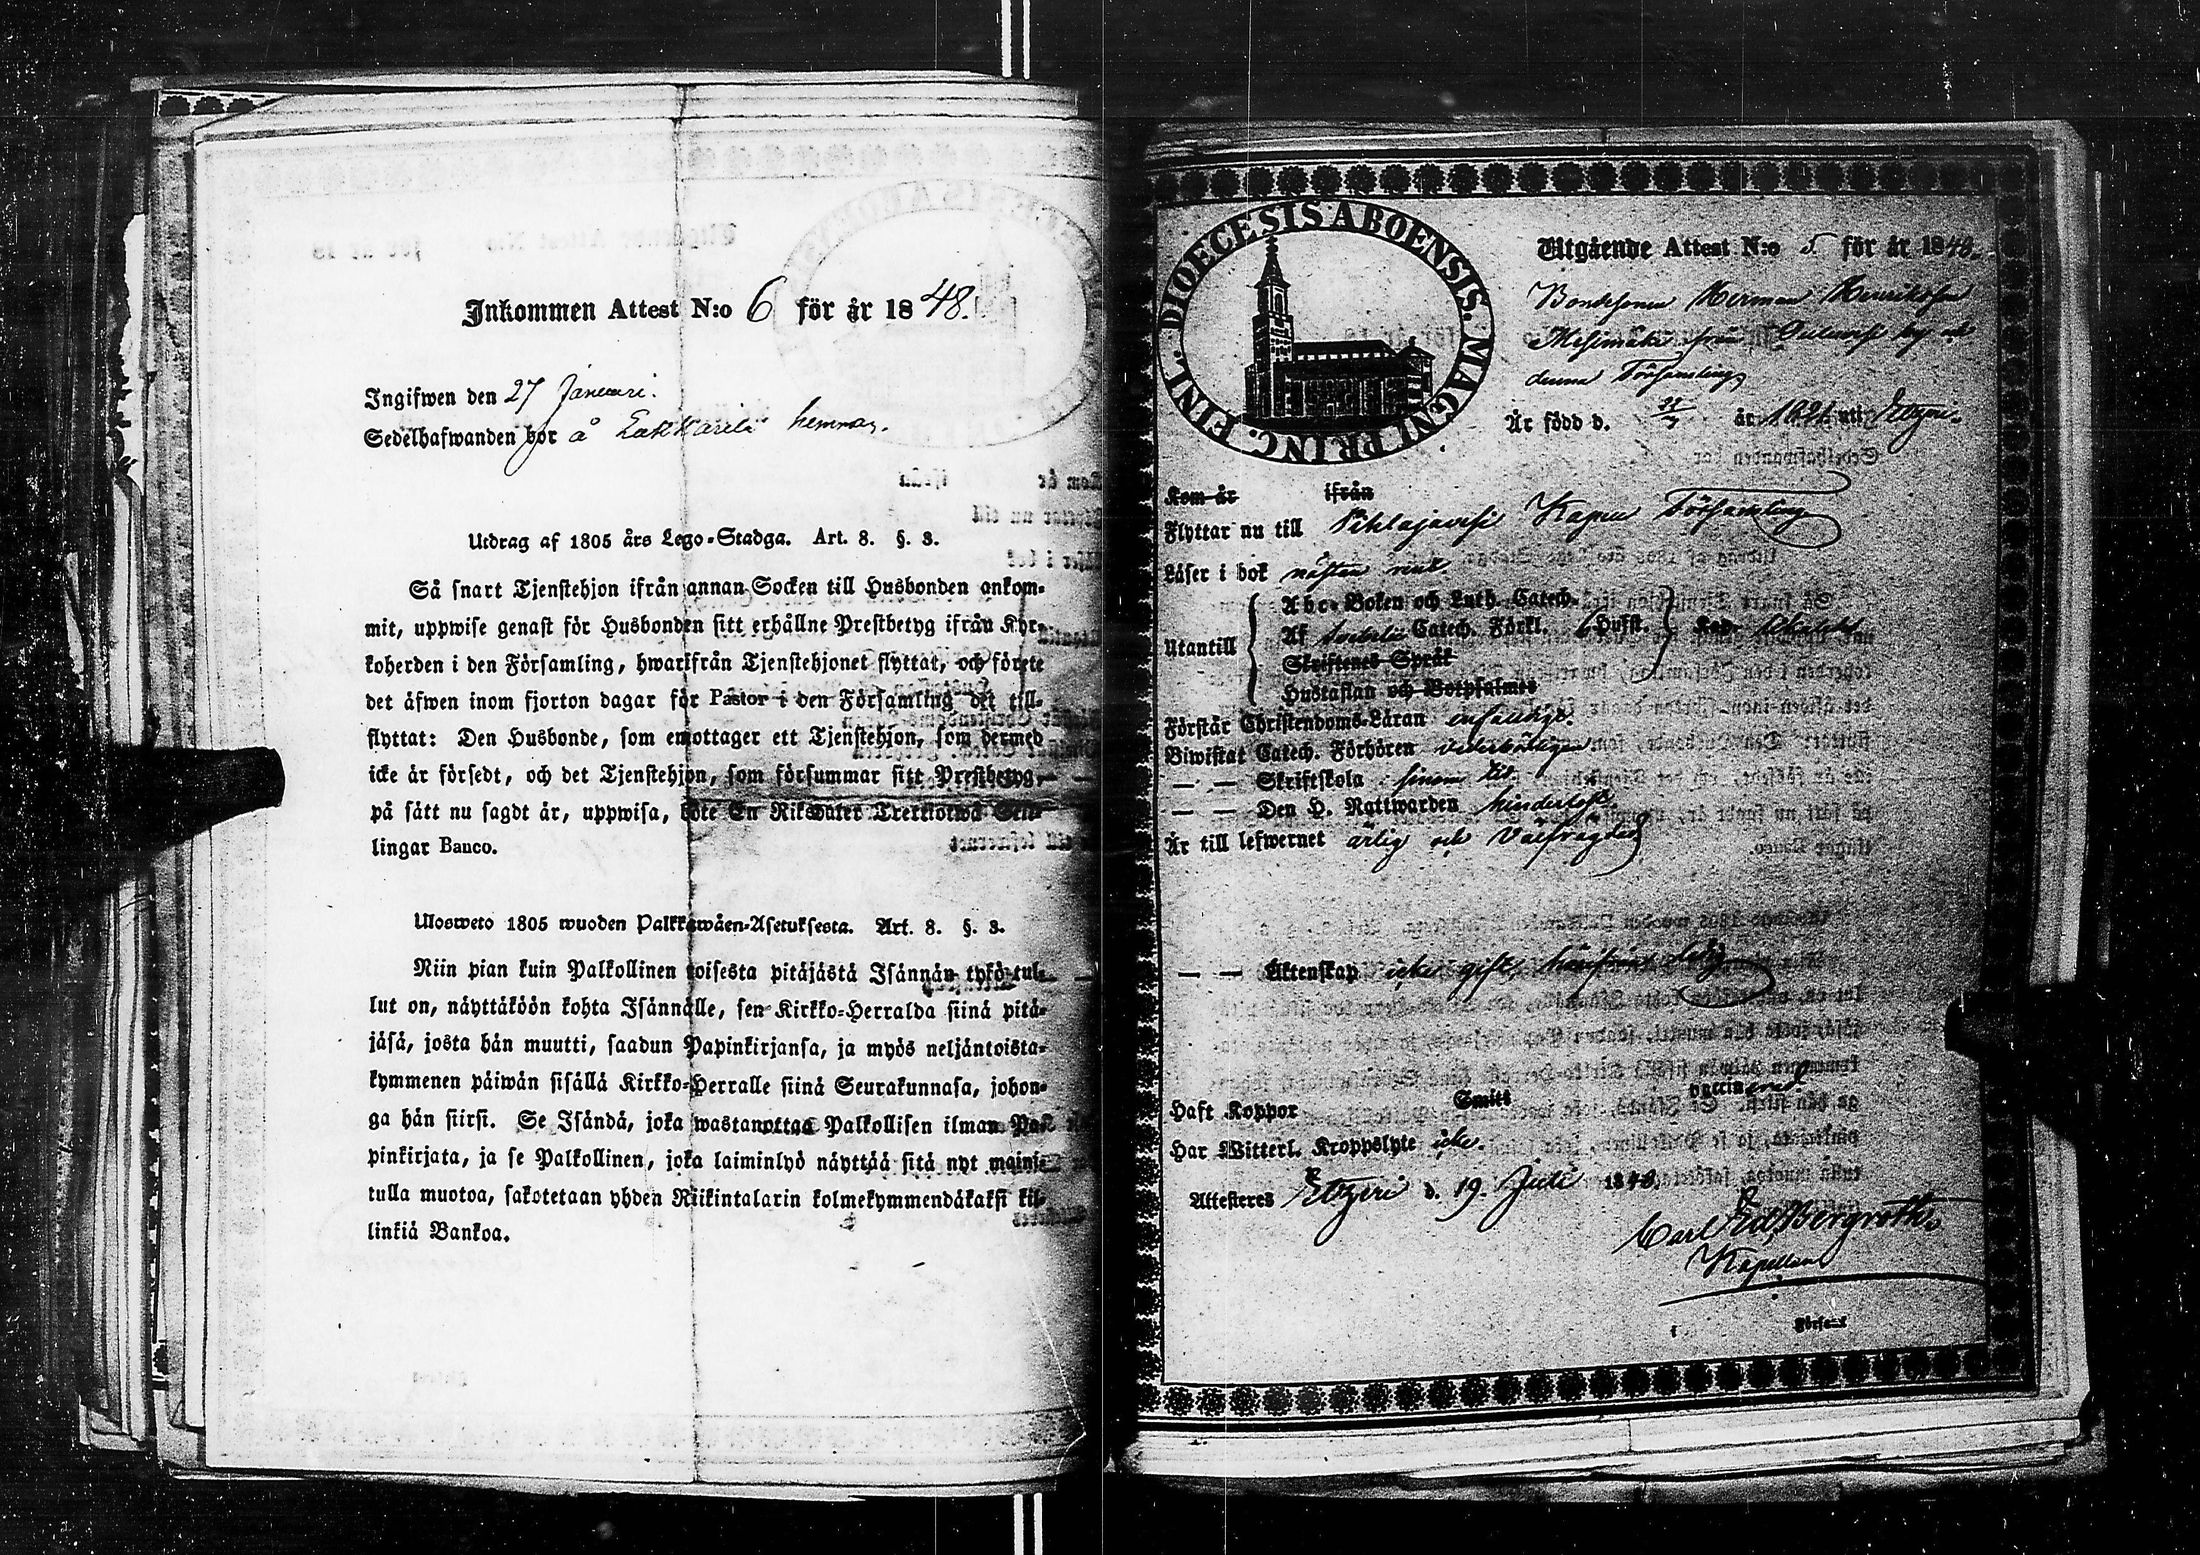 Inkommen Attest N:o 6 för år 1848.
Ingifwen den 27 Januari.
Sedelhafwanden bor å hemman.
Utdrag af 1805 års Lego-Stadga. Art. 8. §. 3.
Så snart Tjenstehjon ifrån annan Socken till Husbonden ankom-
mit, uppwise genast för Husbonden sitt erhållne Prestbetyg ifrån Kyr-
koherden i den Församling, hwarifrån Tjenstehjonet flyttat, och förete
det äfwen inom fjorton dagar för Pastor i den Församling det till-
flyttat: Den Husbonde, som emottager ett Tjenstehjon, som dermed
icke är försedt, och det Tjenstehjon, som försummar sitt Prestbetyg,
på sätt nu sagdt är, uppwisa, böte En Riksdaler Trettiotwå Skil-
lingar Banco.
Ulosweto 1805 wuoden Palkkawäen-Asetuksesta. Art. 8. §. 3.
Niin pian kuin Palkollinen toisesta pitäjästä Isännän tykö tul-
lut on, näyttäköön kohta Isännälle, sen Kirkko-Herralda siinä pitä-
jäsä, josta hän muutti, saadun Papinkirjansa, ja myös neljäntoista-
kymmenen päiwän sisällä Kirkko-Herralle siinä Seurakunnasa, johon-
ga hän siirsi. Se Isändä, joka wastanottaa Palkollisen ilman Pa-
pinkirjata, ja se Palkollinen, joka laiminlyö näyttää sitä nyt mainit-
tulla muotoa, sakotetaan yhden Riikintalarin kolmekymmendäkaksi kil-
linkiä Bankoa.
DIOECESIS ABOENSIS. MAGNI PRINC. FINL.
Utgående Attest N:o 5 för år 1848.
Bondesonen Herman Henriksson
Mesimäki från by
denna Församling
Är född d. år 1821 uti Etzeri.
Kom år ifrån
Flyttar nu till Pihlajavesi Kapell Församling
Läser i bok nästan rent.
Utantill
Abc-Boken och Luth. Catech.
Af Svebelii Catech. Förkl. 6 Hufst.
Skriftenes Språk
Hustaflan och Botpsalmer
Förstår Christendoms-Läran enfaldigt.
Biwistat Catech. Förhören vederbörligen
— — Skriftskola sinom tid
— — Den H. Nattwarden hinderlöst.
Är till lefwernet ärlig och välfrägdad
— — Äktenskap icke gift, härifrån ledig
Haft Koppor Smitt vaccinerad
Har Witterl. Kroppslyte icke.
Attesteres Etzeri d. 19. Juli 1848.
Carl Ed. Bergroth.
Kapellan
i Förs—t